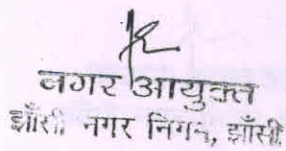 नगर आयुक्त
झाँसी नगर निगम, झाँसी